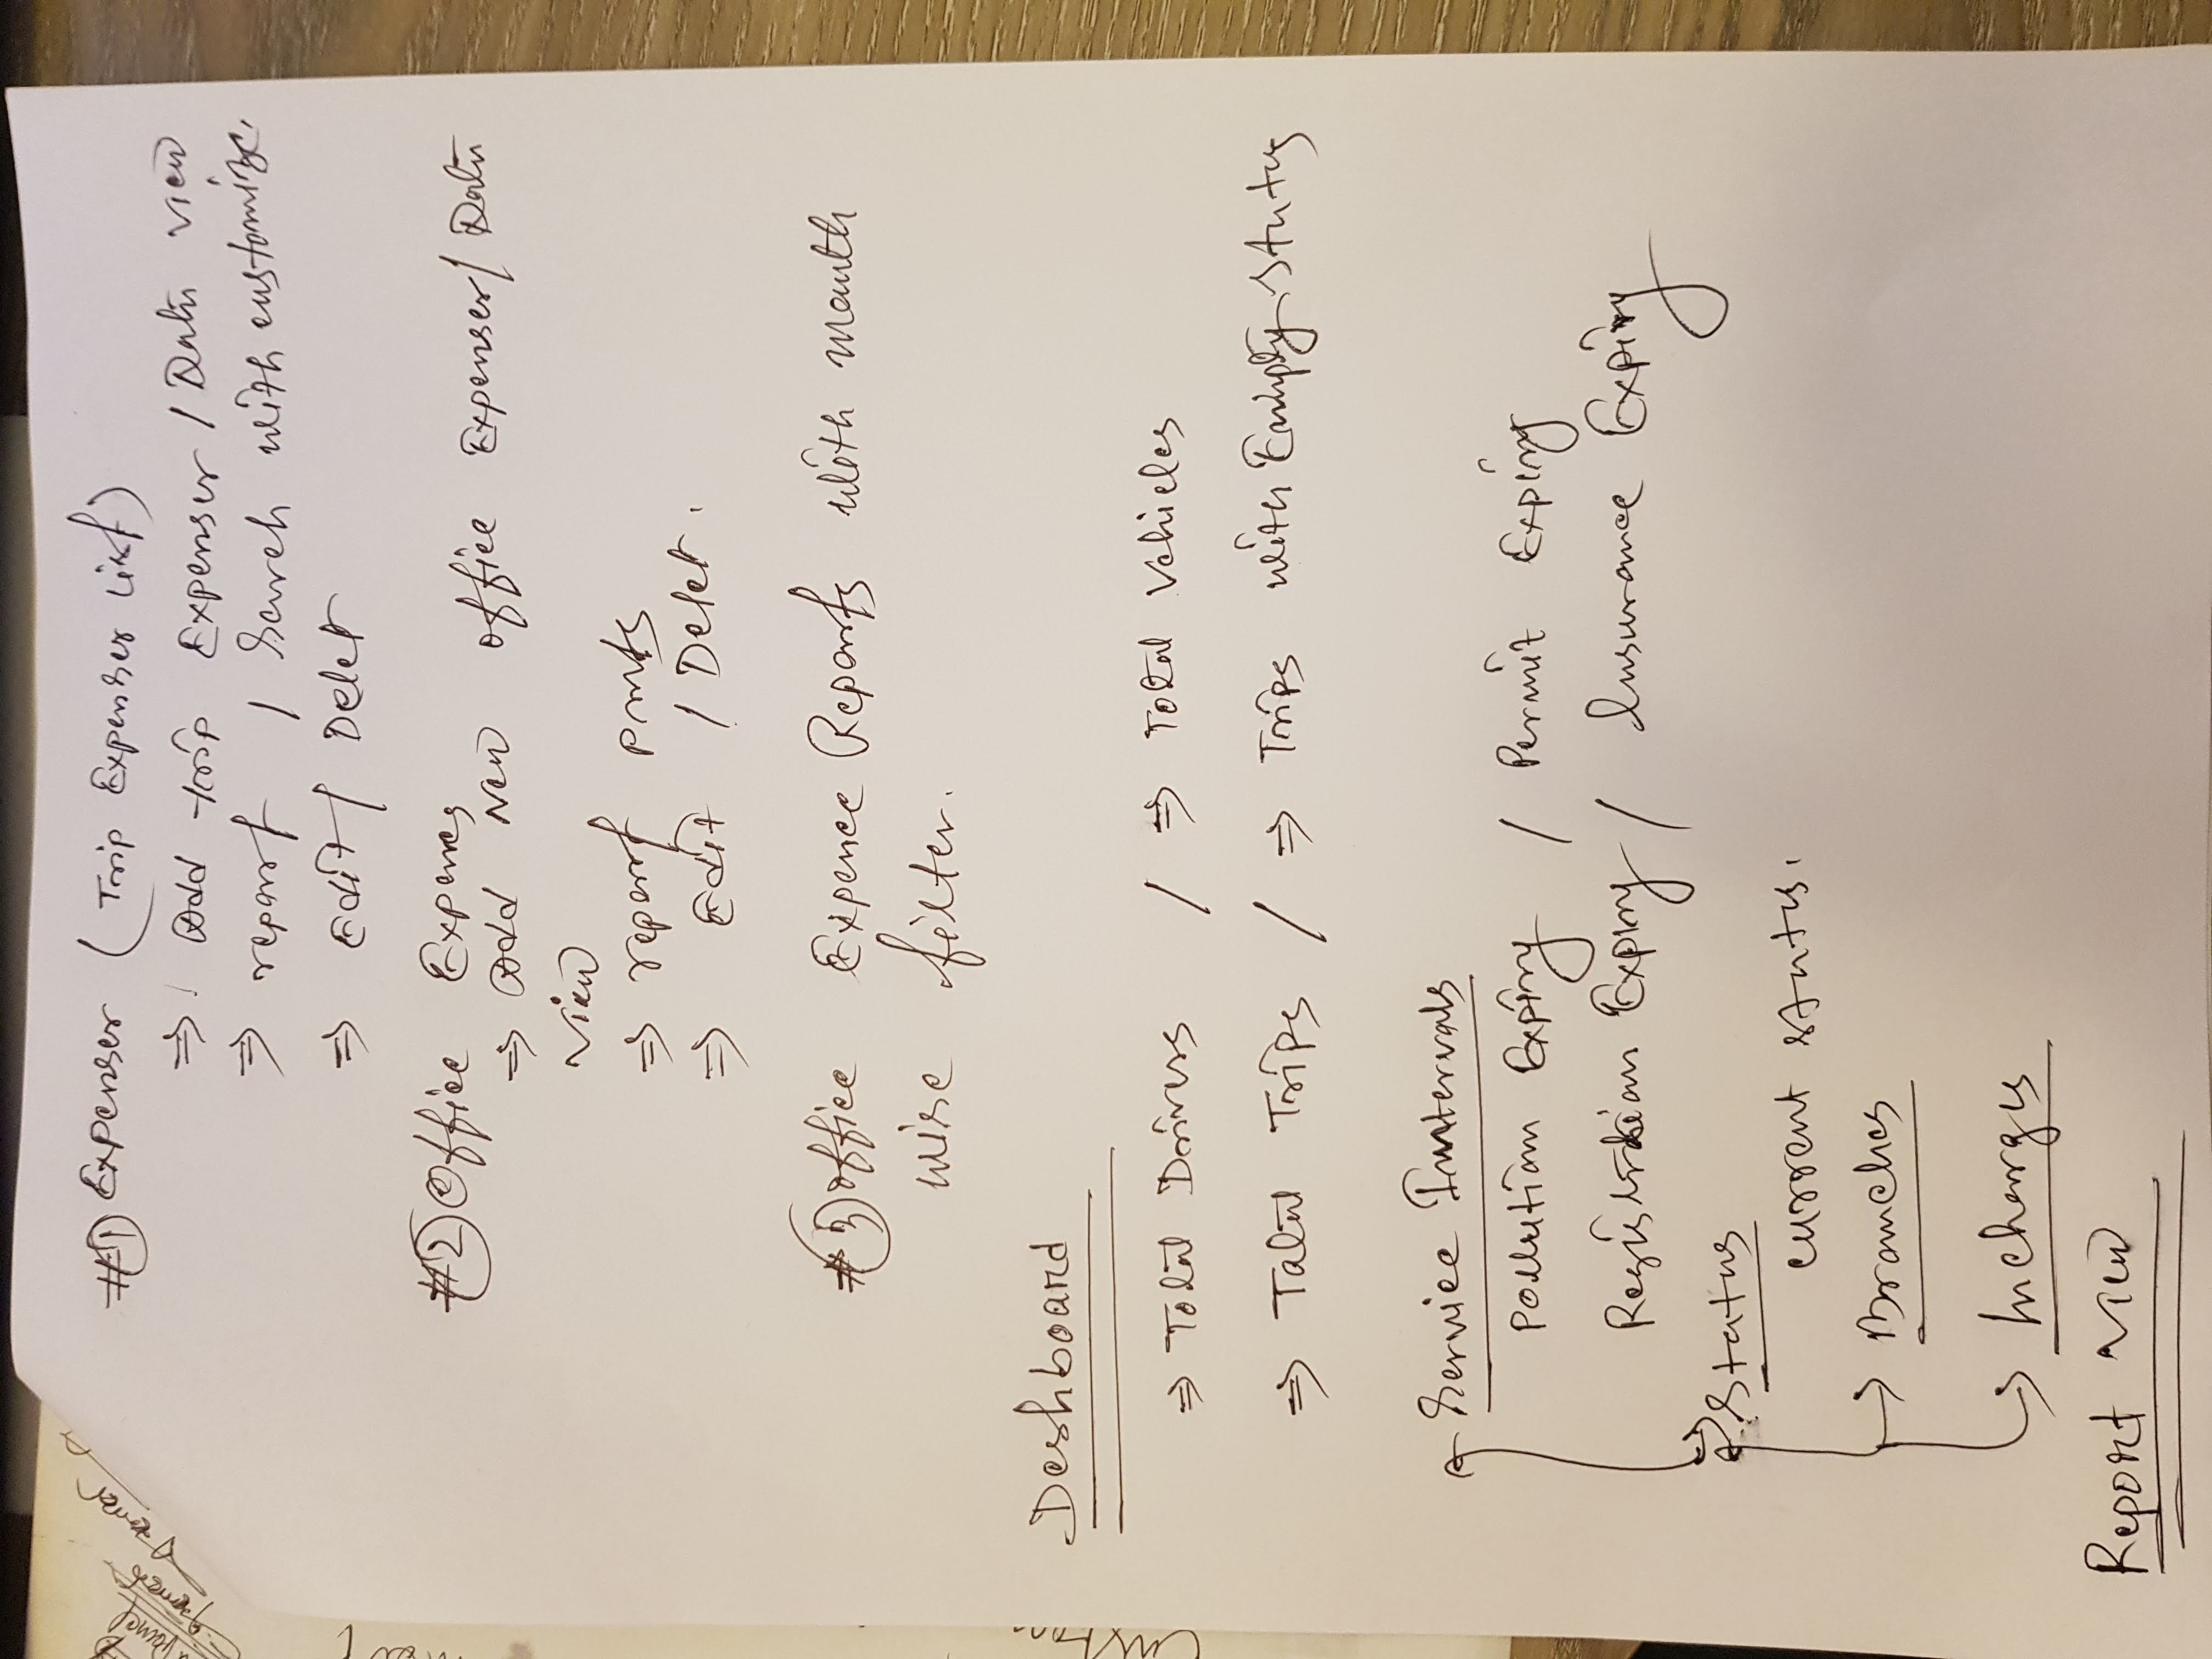 #1 Expenser (Trip Expenser List)
⇒ Add trip Expenser / Data view
⇒ report / Search with customize.
⇒ Edit / Delet
#2 Office Expences
⇒ Add New office Expenser / Data
View
⇒ report prints
⇒ Edit / Delet.
#3 office Expence Reports with month
wise filter.
Deshboard
⇒ Total Drivers / ⇒ Total Vehicles
⇒ Total Trips / ⇒ Trips with Empty status
Service Intervals
Pollution Expiry / Permit Expiry
Registration Expiry / Insurance Expiry
⇒ Status
current status.
→ Branches
→ Incharges
Report View